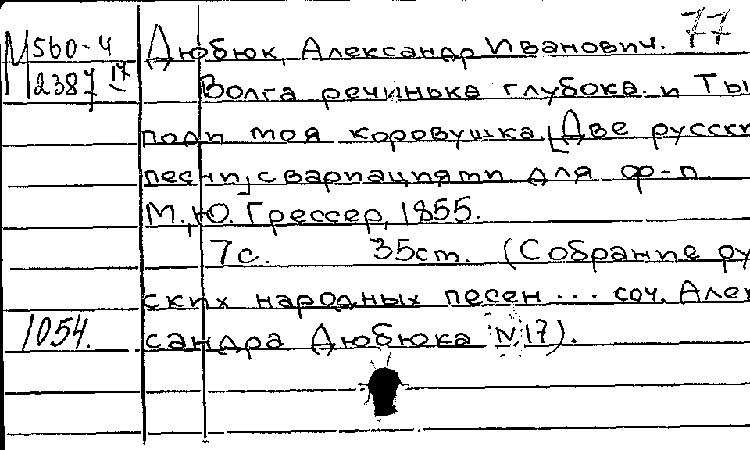 М560-4 Дюбюк, Александр Иванович. 77
2387 IV Волга реченька глубока и Ты
поди моя коровушка. [Две русск
песни, с вариациями для ф-п
М., Ю. Грессер, 1855.
7с. 35cm. (Собрание ру
ских народных песен ... соч. Алек
1054. сандра Дюбюка N17).